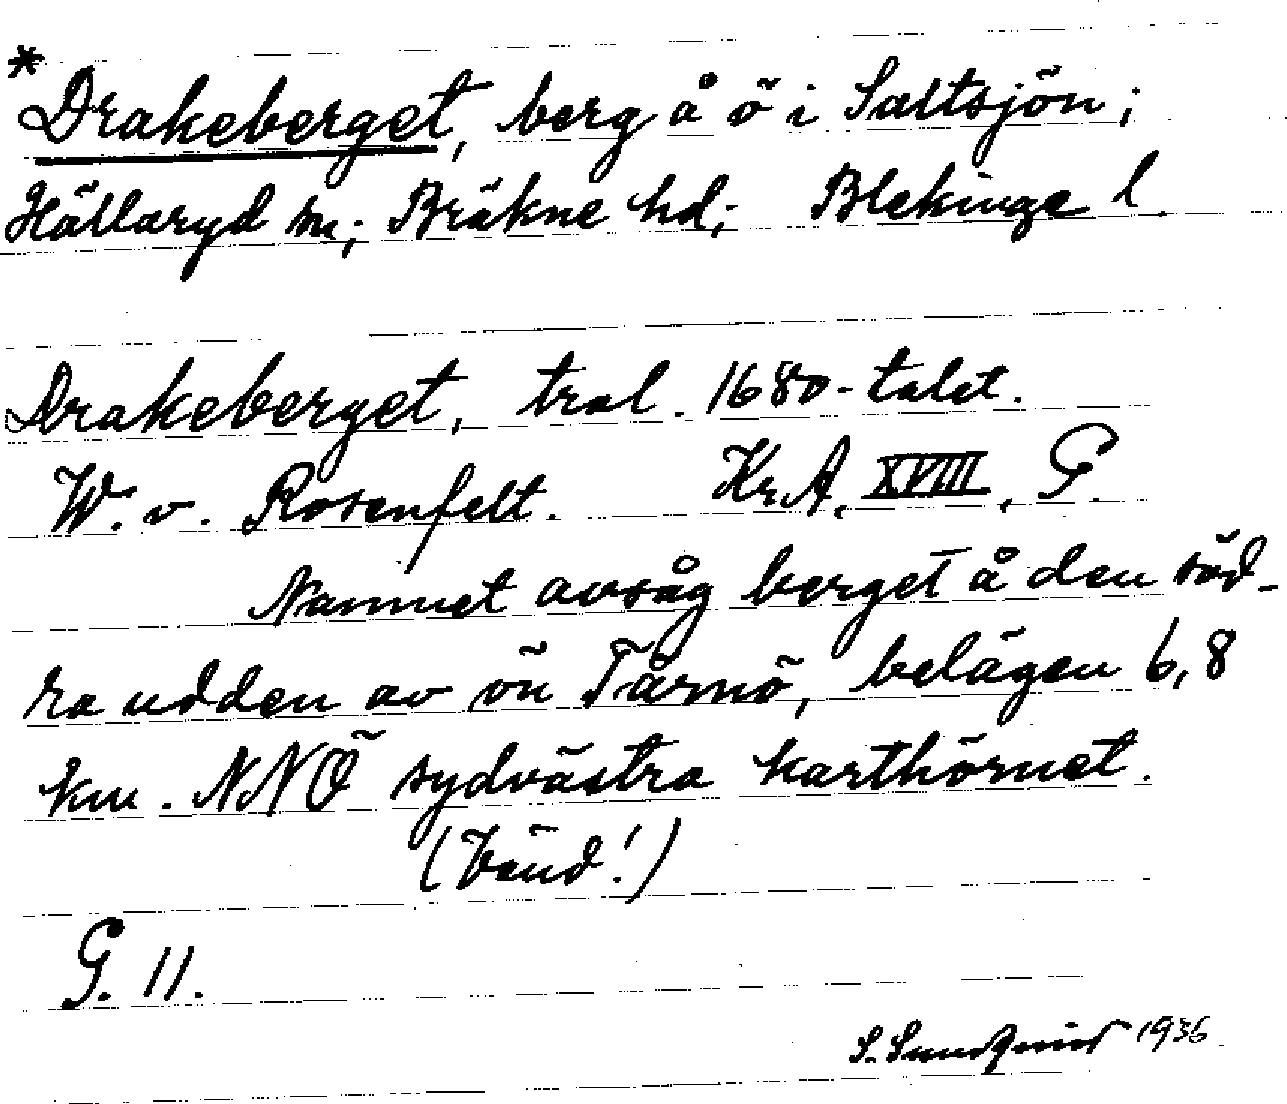 *Drakeberget, berg å ö i Saltsjön;
Hällaryd sn; Bräkne hd; Blekinge l.
Drakeberget, trol. 1680-talet.
W. v. Rosenfelt. Kr.A. XVIII, G.
Namnet avsåg berget å den söd-
ra udden av ön Tärnö, belägen 6,8
km. NNÖ sydvästra karthörnet.
(Vänd!)
G. 11.
S. Sundqvist 1936